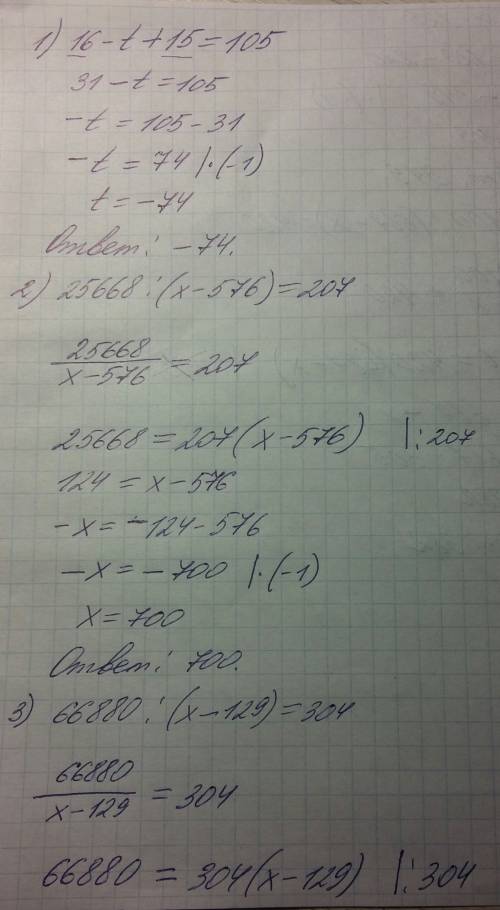 1) 16 - t + 15 = 105
31 - t = 105
-t = 105 - 31
-t = 74 |·(-1)
t = -74
Ответ: -74.
2) 25668 : (x - 576) = 207
25668
/ x - 576 = 207
25668 = 207(x - 576) |: 207
124 = x - 576
-x = -124 - 576
-x = -700 |·(-1)
x = 700
Ответ: 700.
3) 66880 : (x - 129) = 304
66880
/ x - 129 = 304
66880 = 304(x - 129) |: 304